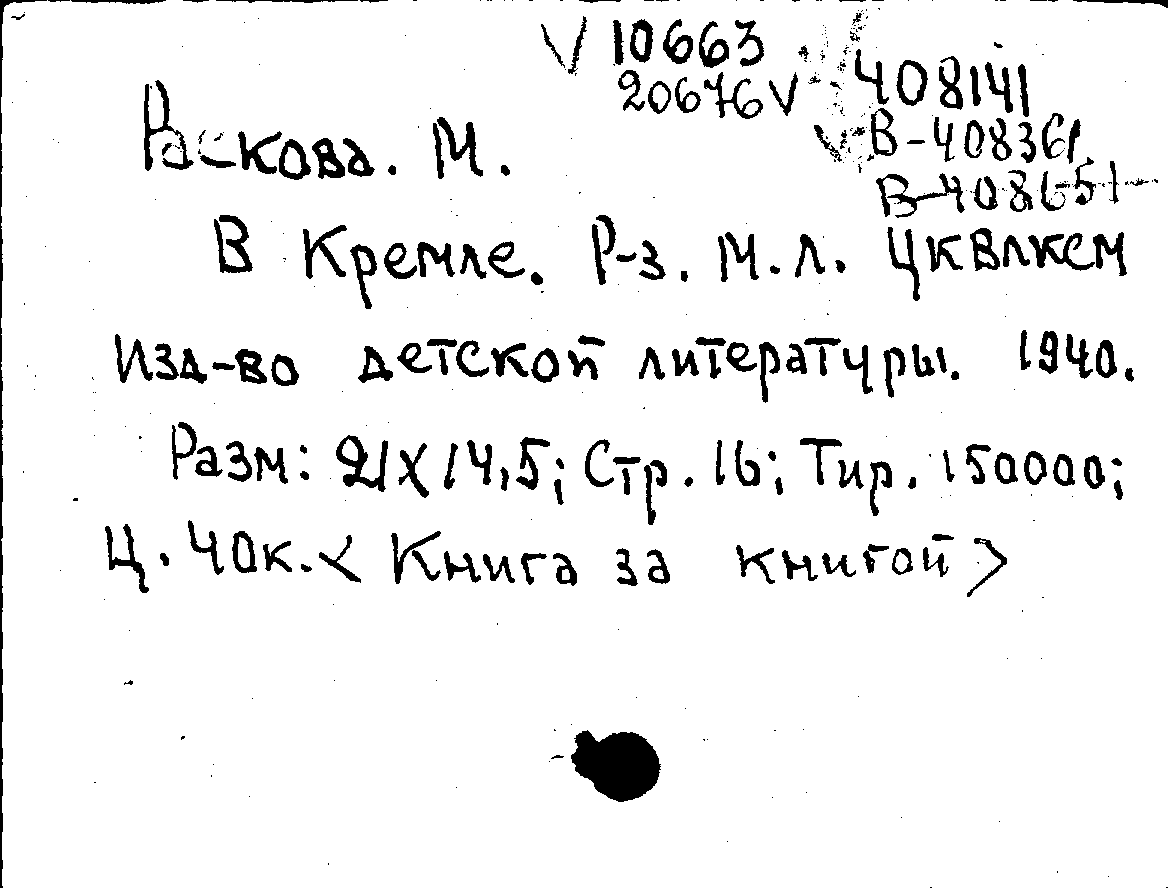 V 10663
20676 V 408141
V B-408361.
B-408651
Раскова. М.
В Кремле. Р-з. М.Л. ЦКВЛКСМ
Изд-во детской литературы. 1940.
Разм: 21X14,5; Стр. 16; Тир. 150000;
Ц. 40к. < Книга за книгой >